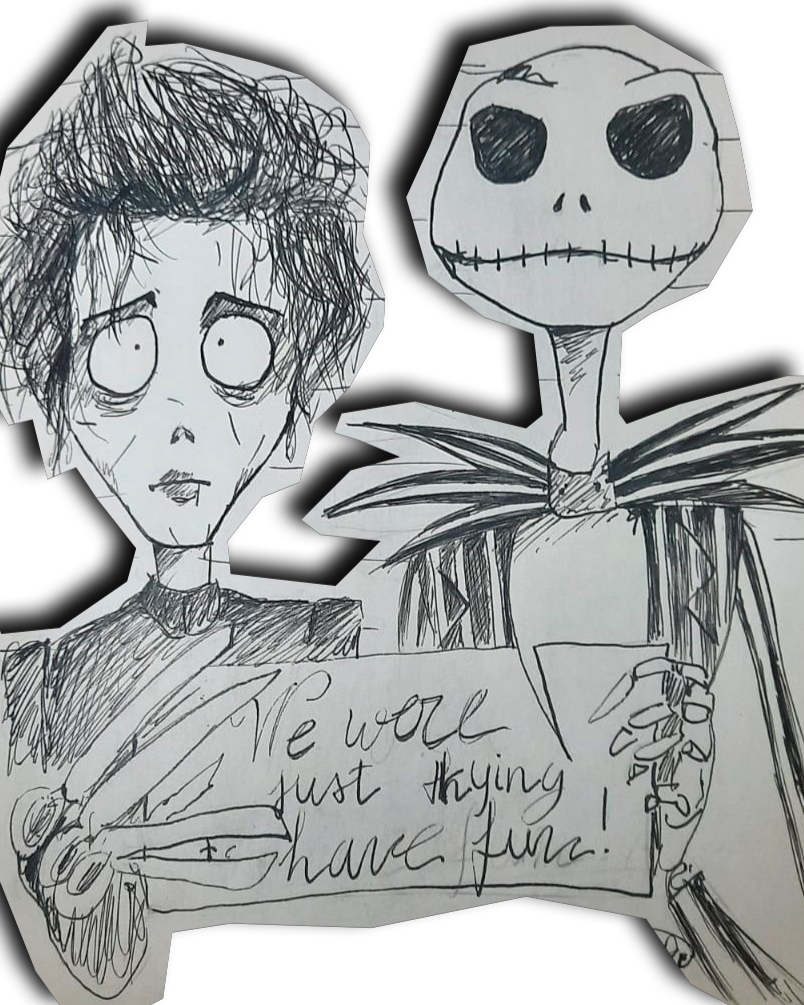 We were
just trying
have fun!